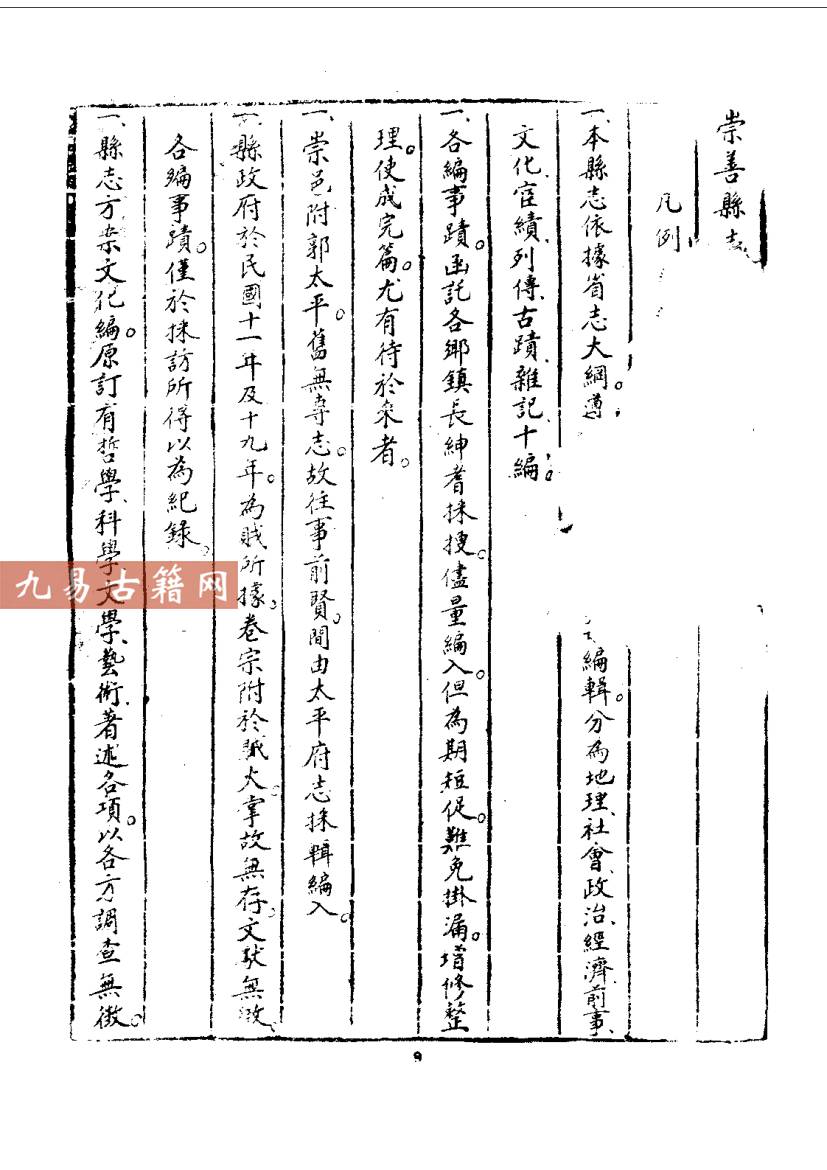 崇善縣志
凡例
一、本縣志依據省志大綱遵編輯。分為地理、社會、政治、經濟、前事、
文化、宦績、列傳、古蹟、雜記、十編。
一、各編事蹟。函託各鄉鎮長紳耆採搜。儘量編入。但為期短促。難免掛漏。增修整
理。使成完篇。尤有待於來者。
一、崇邑附郭太平。舊無專志。故往事前賢。間由太平府志採輯編入。
一、縣政府於民國十一年及十九年。為賊所據。卷宗附於賊火。掌故無存。文獻無徵、
各編事蹟。僅於採訪所得以為紀錄。
一、縣志方案文化編。原訂有哲學、科學、文學、藝術、著述各項。以各方調查無徵。
9
九易古籍网